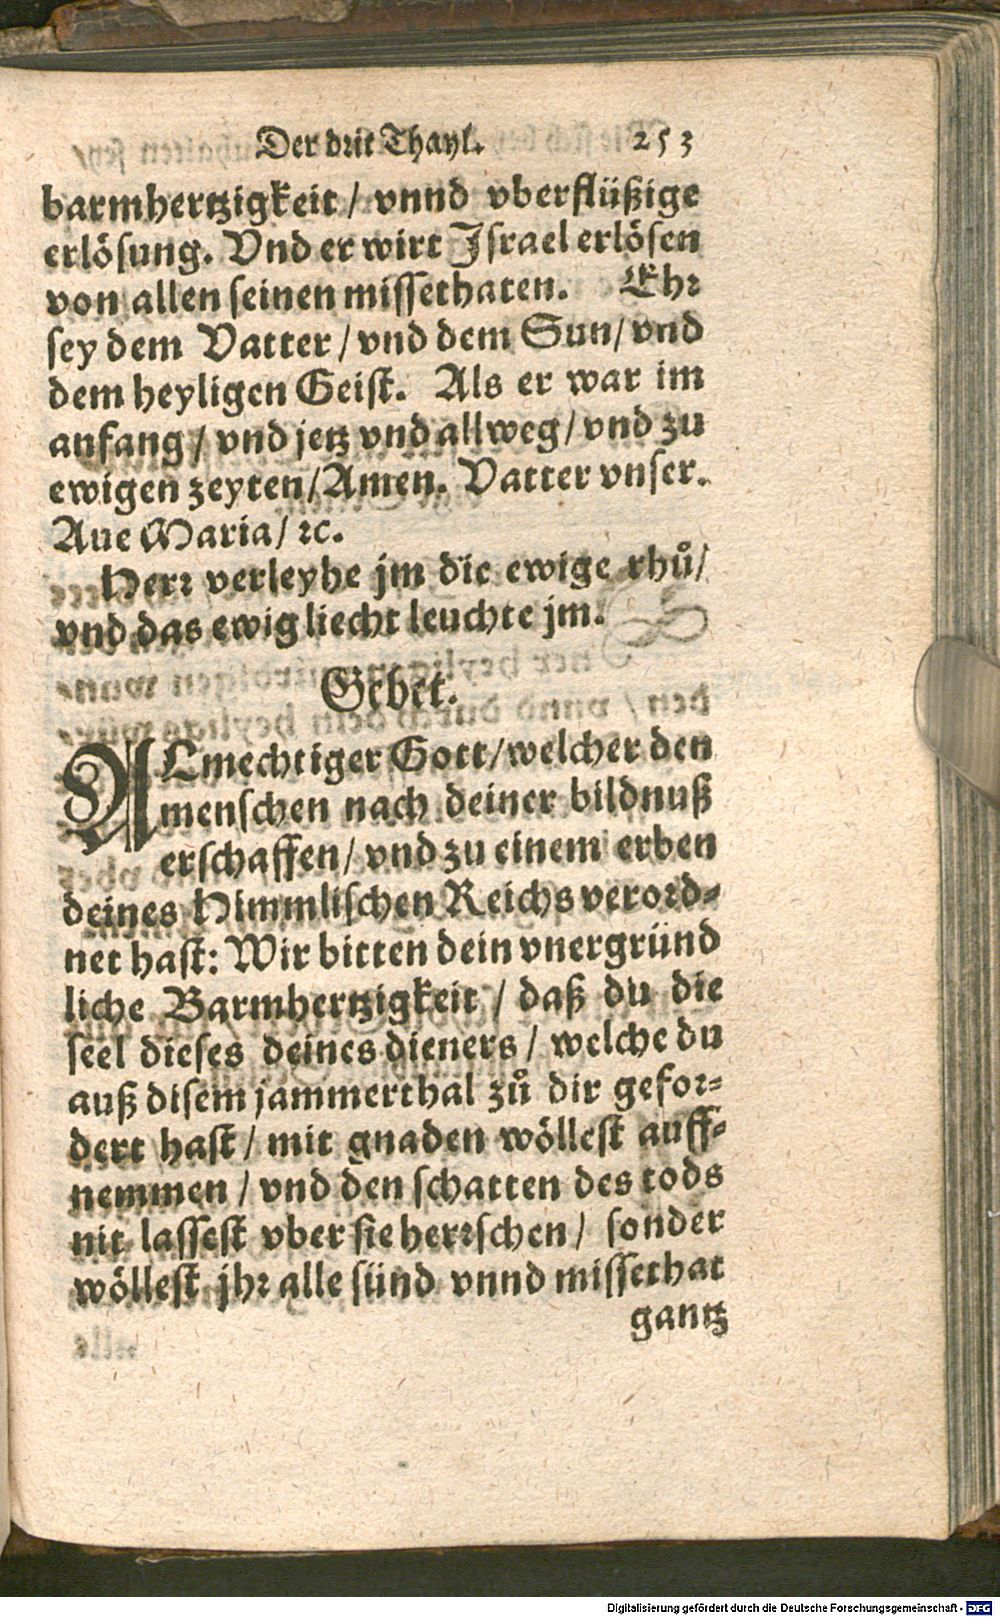 Der drit Thayl. 253
barmhertzigkeit / vnnd vberflüßige
erlösung. Vnd er wirt Israel erlösen
von allen seinen missethaten. Ehr
sey dem Vatter / vnd dem Sun / vnd
dem heyligen Geist. Als er war im
anfang / vnd jetz vnd allweg / vnd zu
ewigen zeyten / Amen. Vatter vnser.
Aue Maria / ꝛc.
Herr verleyhe jm die ewige rhů /
vnd das ewig liecht leuchte jm.
Gebet.
ALmechtiger Gott / welcher den
menschen nach deiner bildnuß
erschaffen / vnd zu einem erben
deines Himmlischen Reichs verord-
net hast: Wir bitten dein vnergründ
liche Barmhertzigkeit / daß du die
seel dieses deines dieners / welche du
auß disem jammerthal zů dir gefor-
dert hast / mit gnaden wöllest auff-
nemmen / vnd den schatten des tods
nit lassest vber sie herrschen / sonder
wöllest jhr alle sünd vnnd missethat
gantz
Digitalisierung gefördert durch die Deutsche Forschungsgemeinschaft - DFG